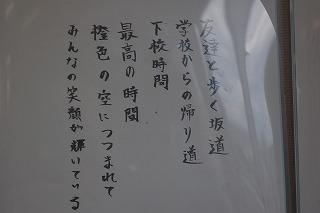 友達と歩く坂道
学校からの帰り道
下校時間
最高の時間
橙色の空につつまれて
みんなの笑顔が輝いている